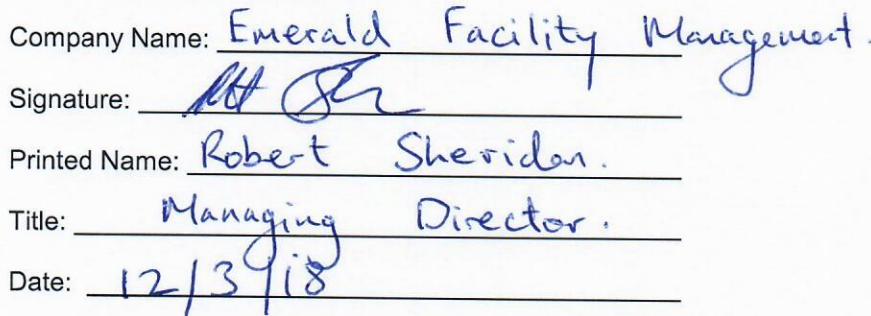 Company Name: Emerald Facility Management.
Signature:
Printed Name: Robert Sheridan.
Title: Managing Director.
Date: 12/3/18